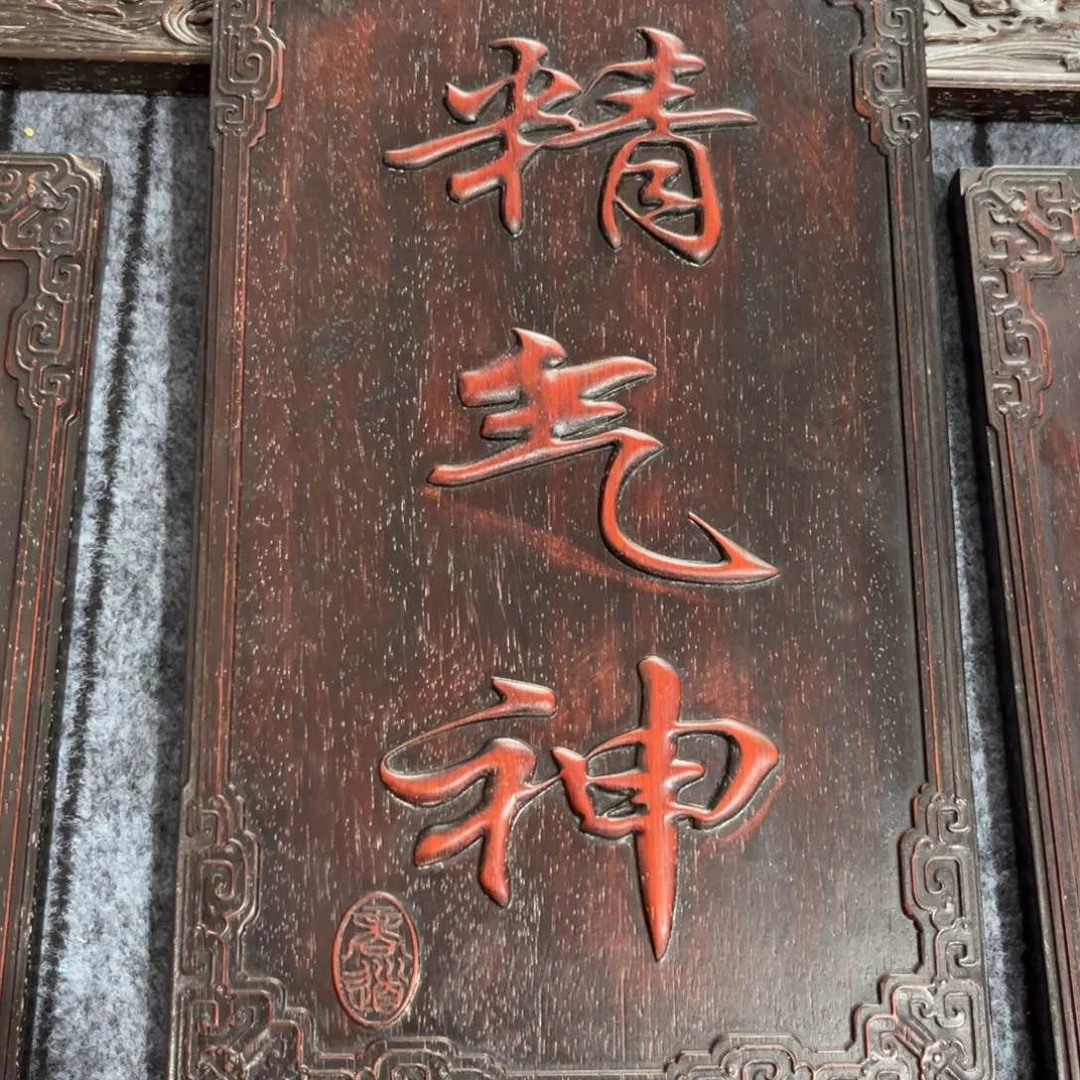 精
气
神